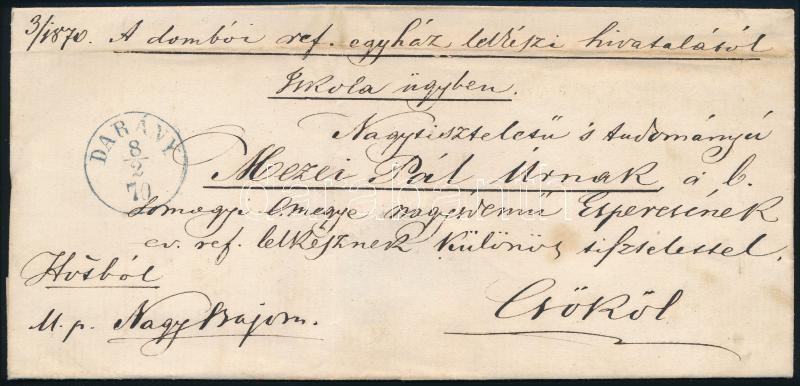 3/1870. A dombói ref. egyház lelkészi hivatalától
Iskola ügyben.
DARÁNY
8/2
70
Nagytiszteletű s tudományú
Mezei Pál Úrnak a b.
somogyi emegye nagyérdemű Esperesének
ev. ref. lelkésznek különös tisztelettel.
Hivból
U. p. Nagy Bajom.
Csököl
darabanth